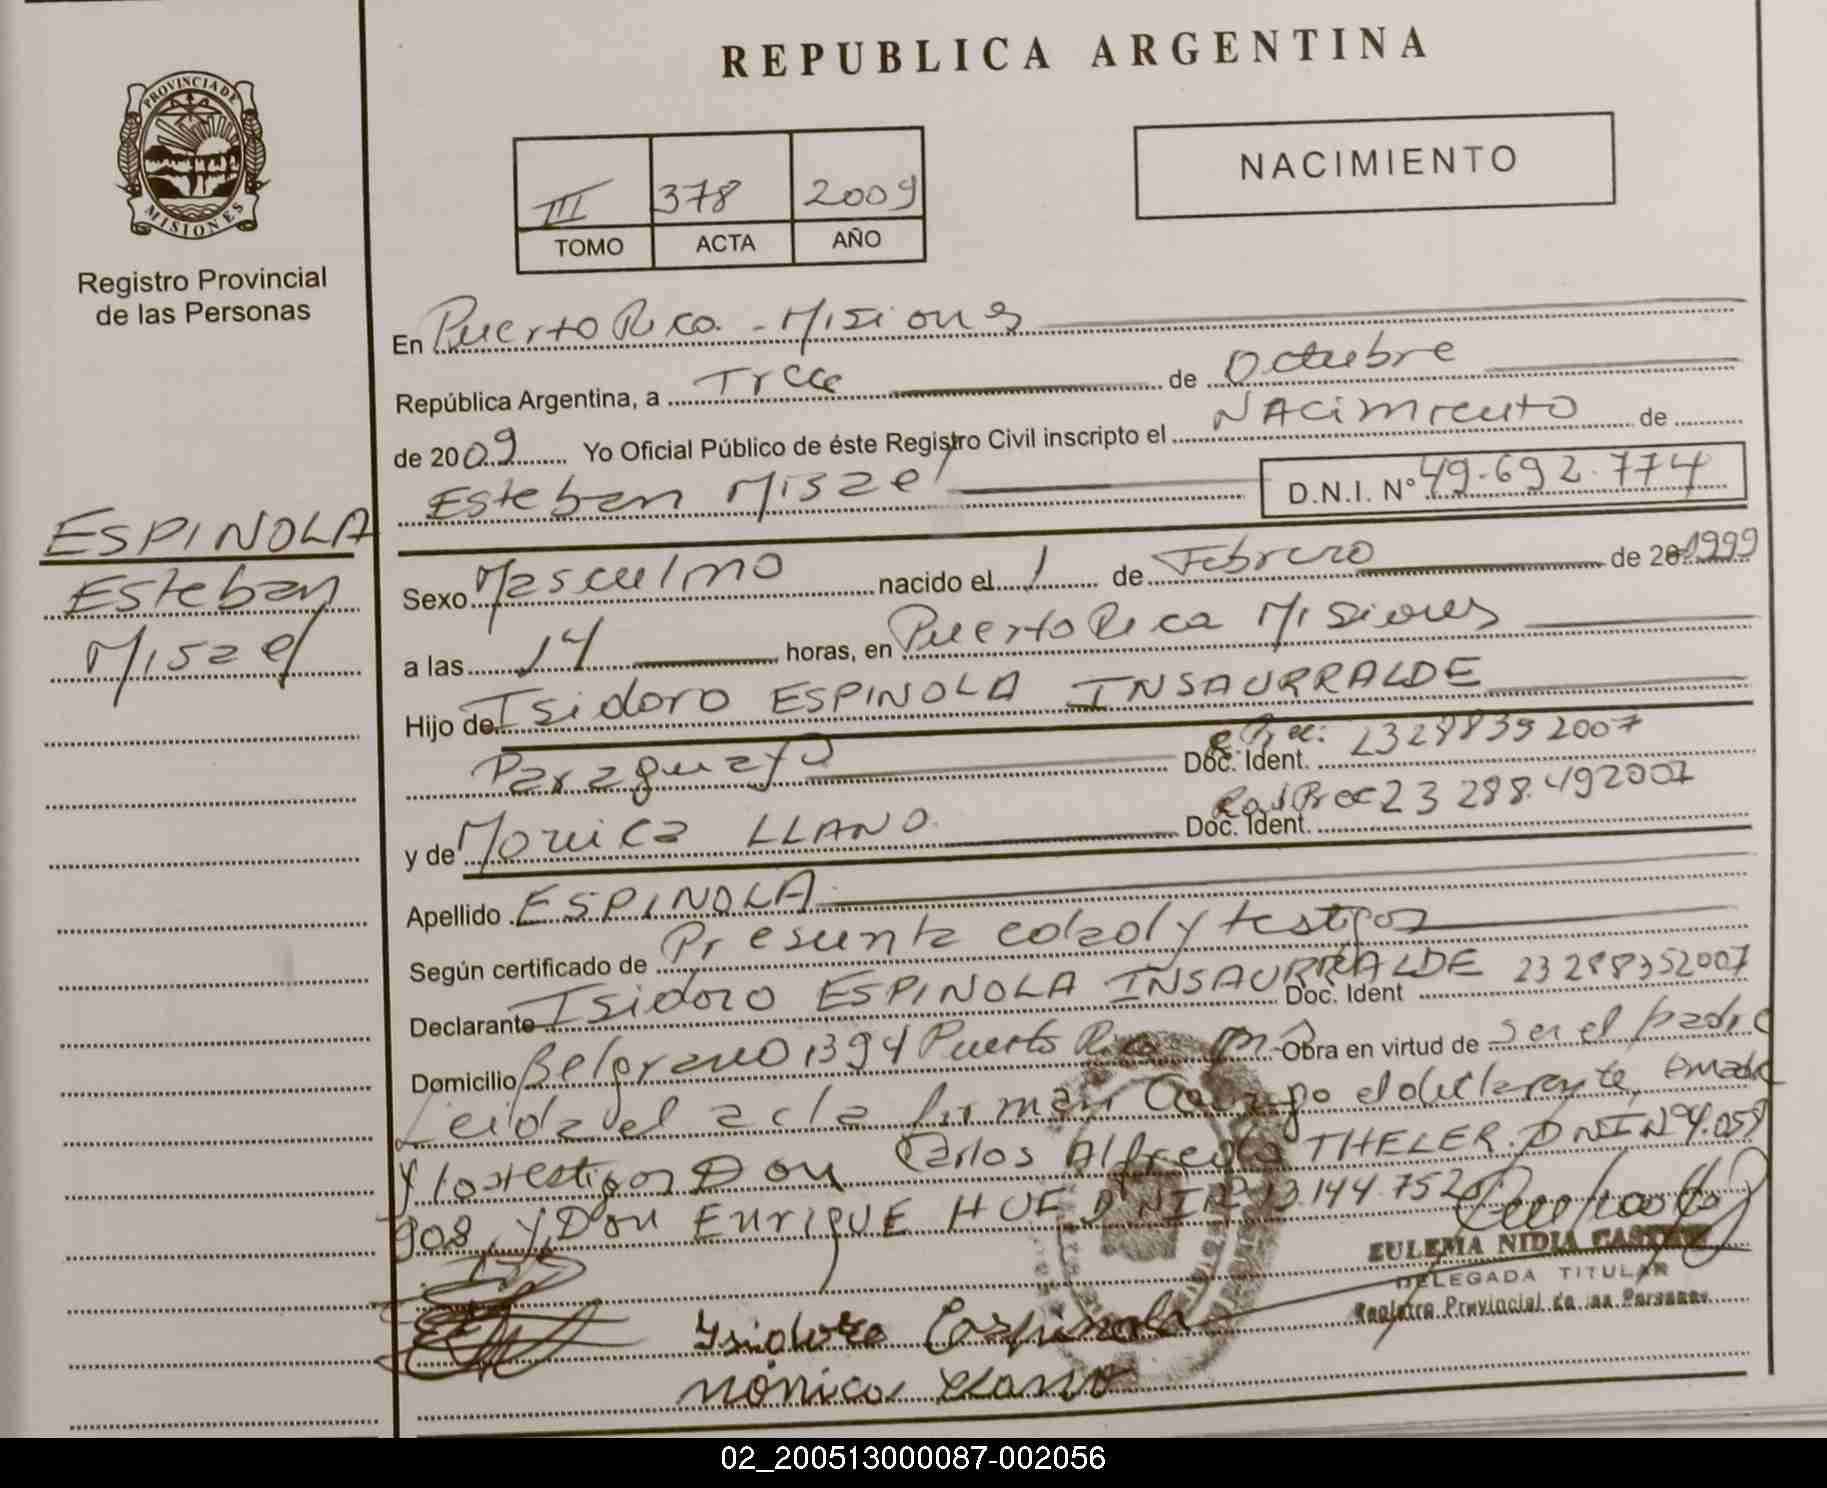 PROVINCIA DE
MISIONES
Registro Provincial
de las Personas
REPUBLICA ARGENTINA
III 378 2009
TOMO ACTA AÑO
NACIMIENTO
En Puerto Rico - Misiones
República Argentina, a Trece de Octubre
de 2009 Yo Oficial Público de éste Registro Civil inscripto el NAcimiento de
Esteban Misael D.N.I. Nº 49.692.774
ESPINOLA
Esteban
Misael
Sexo Masculino nacido el 1 de Febrero de 20 1999
a las 14 horas, en Puerto Rico Misiones
Hijo de Isidoro ESPINOLA INSAURRALDE
Paraguayo Doc. Ident. 23288352007
y de Monica LLANO Doc. Ident. 23288.492007
Apellido ESPINOLA
Según certificado de Presenta y testigos
Declarante Isidoro ESPINOLA INSAURRALDE Doc. Ident 23288352007
Domicilio Belgrano 1394 Puerto Rico Mns Obra en virtud de Ser el padre
Leida el acta firman Conmigo el declarante, madre
y los testigos Don Carlos Alfredo THELER. DNI Nº 4.059
908, y Don ENRIQUE HUE DNI Nº 13.144.752
ZULEMA NIDIA
DELEGADA TITULAR
Registro Provincial de las Personas
Ysidoro Espinola
Mónica Llano
02_200513000087-002056